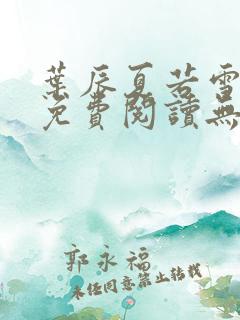 葉辰夏若雪
免費閱讀無
郭永福
未經同意禁止轉載